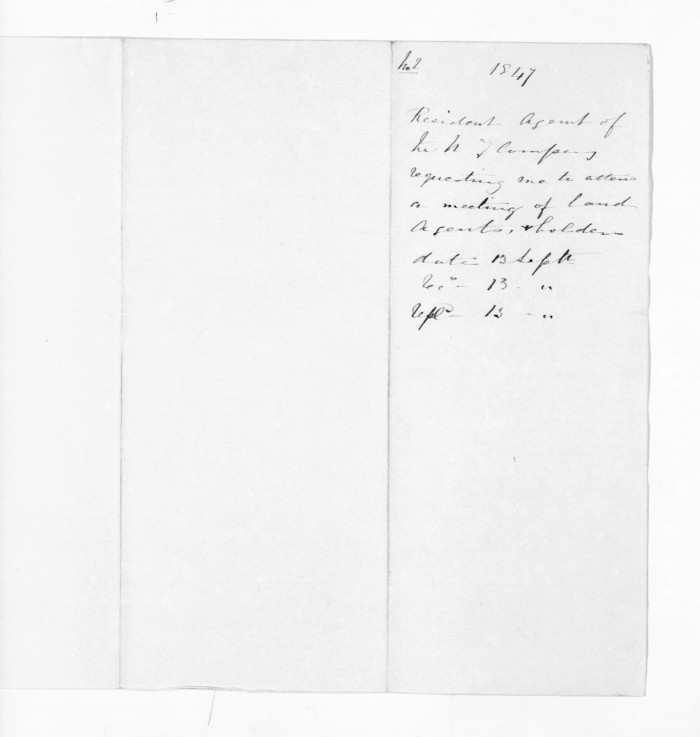 No 2 1847
Resident Agent of
the N Z Company
requesting me to attend
a meeting of land
Agents, & holders
date 13 Sept
Rec^d - 13 - "
Repl^d - 13 - "